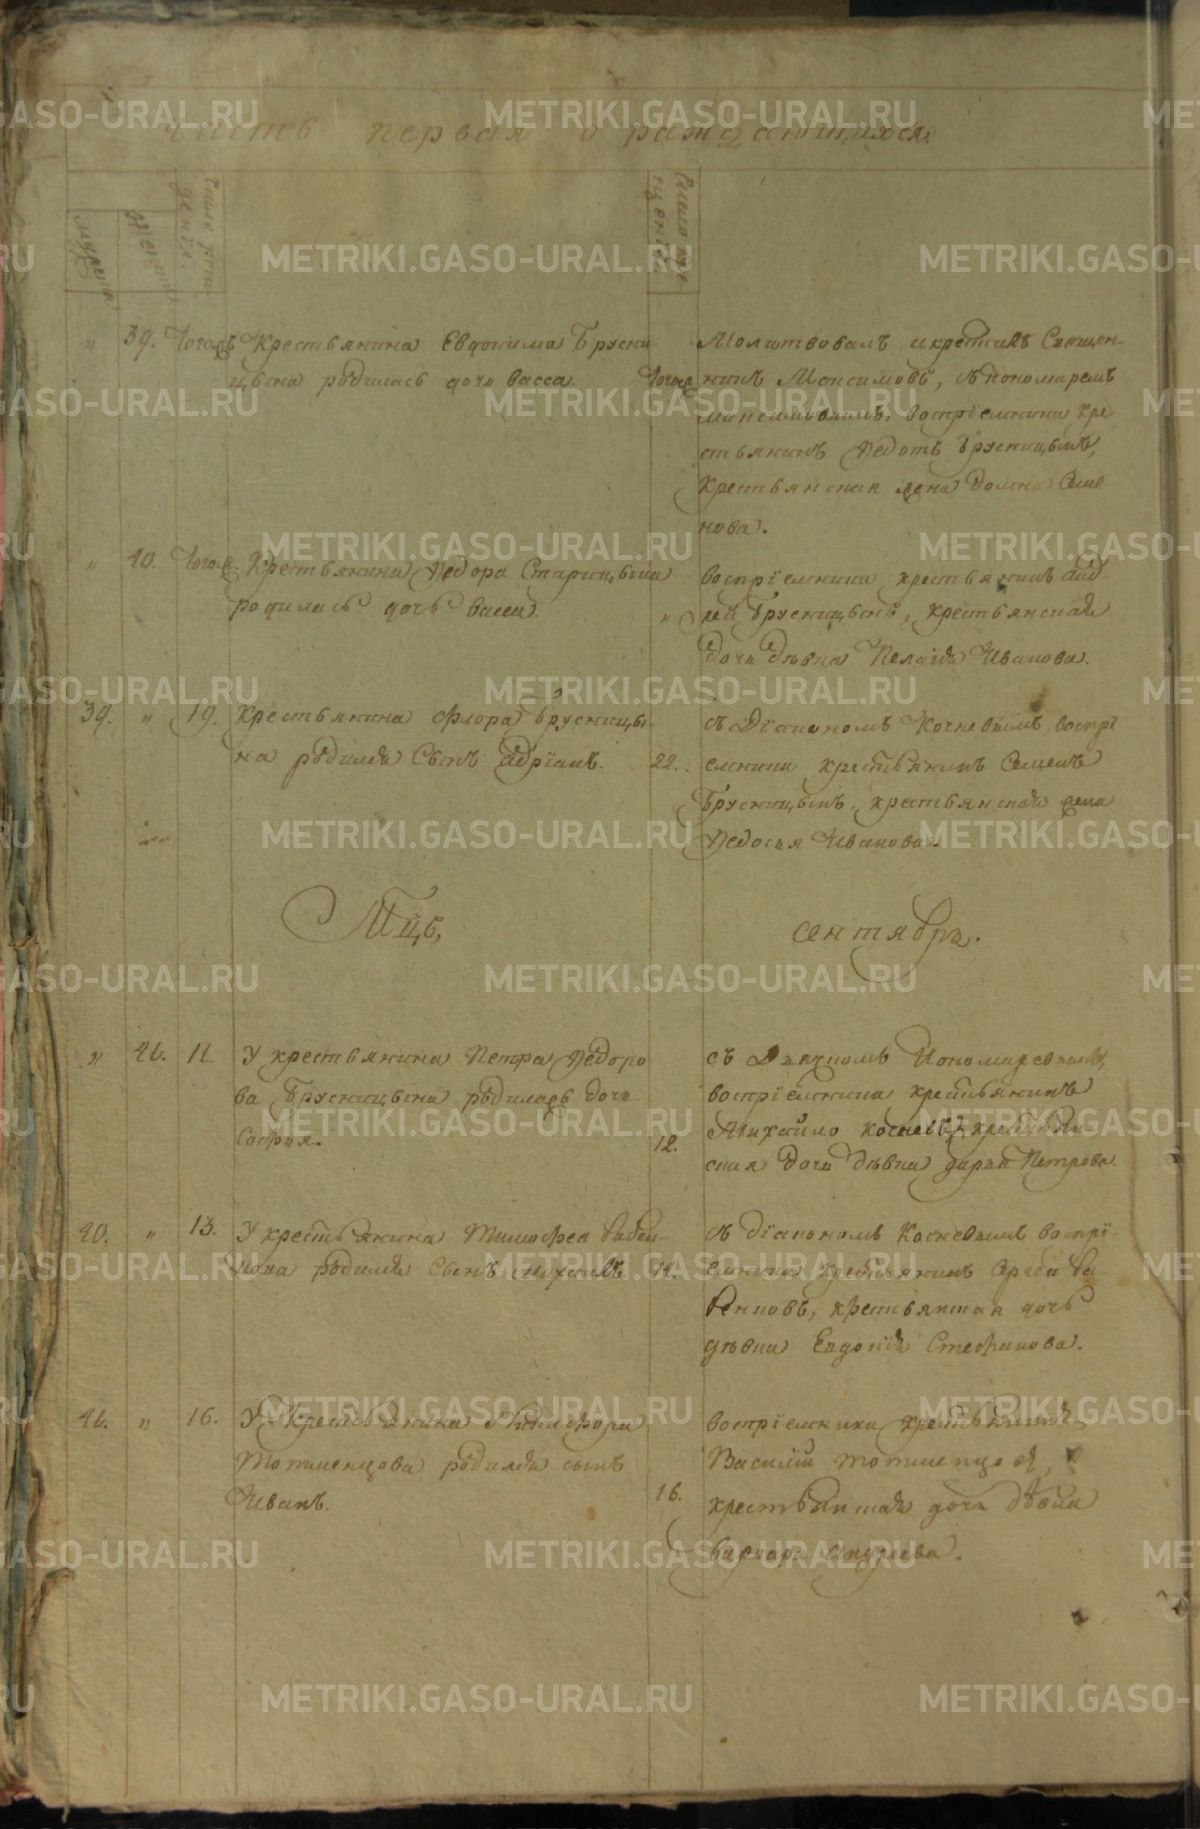 первая о раждающихся
Число рождения.
Число крещенiя
„ 39. Тогожъ Крестьянина Евдокима Брусни
цына родилась дочь Васса.
Тогоже
Молитвовалъ и крестилъ Священ-
никъ Максимовъ, съ пономаремъ
воспрiемники кре
стьянинъ Ѳедотъ Брусницынъ,
Крестьянская жена Домна Семе
нова.
„ 40. Тогож Крестьянина Ѳедора Старицына
родилась дочь Васса.
„
воспрiемники крестьянинъ анд-
рей Брусницынъ, крестьянская
дочь дѣвка Пелагiя Иванова.
39. „ 19. Крестьянина Флора Брусницы-
на родился Сынъ Адрiанъ.
22.
съ Дiакономъ Кочневымъ, воспрi
емники крестьянинъ Семенъ
Брусницынъ, крестьянская жена
Ѳедосья Иванова.
Мцъ,
сентябрь.
„ 41. 11. У крестьянина Петра Ѳедоро
ва Брусницына родилась дочь
Софья.
12.
съ Дьячкомъ Пономаревымъ,
воспрiемники крестьянинъ
Михайло крестьян-
ская дочь дѣвка дарья Петрова
40. „ 13. У крестьянина Тимофея Бабен-
кова родился Сынъ Михаилъ
14.
съ дiакономъ Кочневымъ воспрi-
емники крестьянинъ Ба-
бенковъ, крестьянская дочь
дѣвка Евдокiя Стефанова.
41. „ 16. У Крестьянина Никифора
Тотменцова родился сынъ
Иванъ.
16.
воспрiемники крестьянинъ
Василiй
крестьянская дочь дѣвка
варвара
METRIKI.GASO-URAL.RU